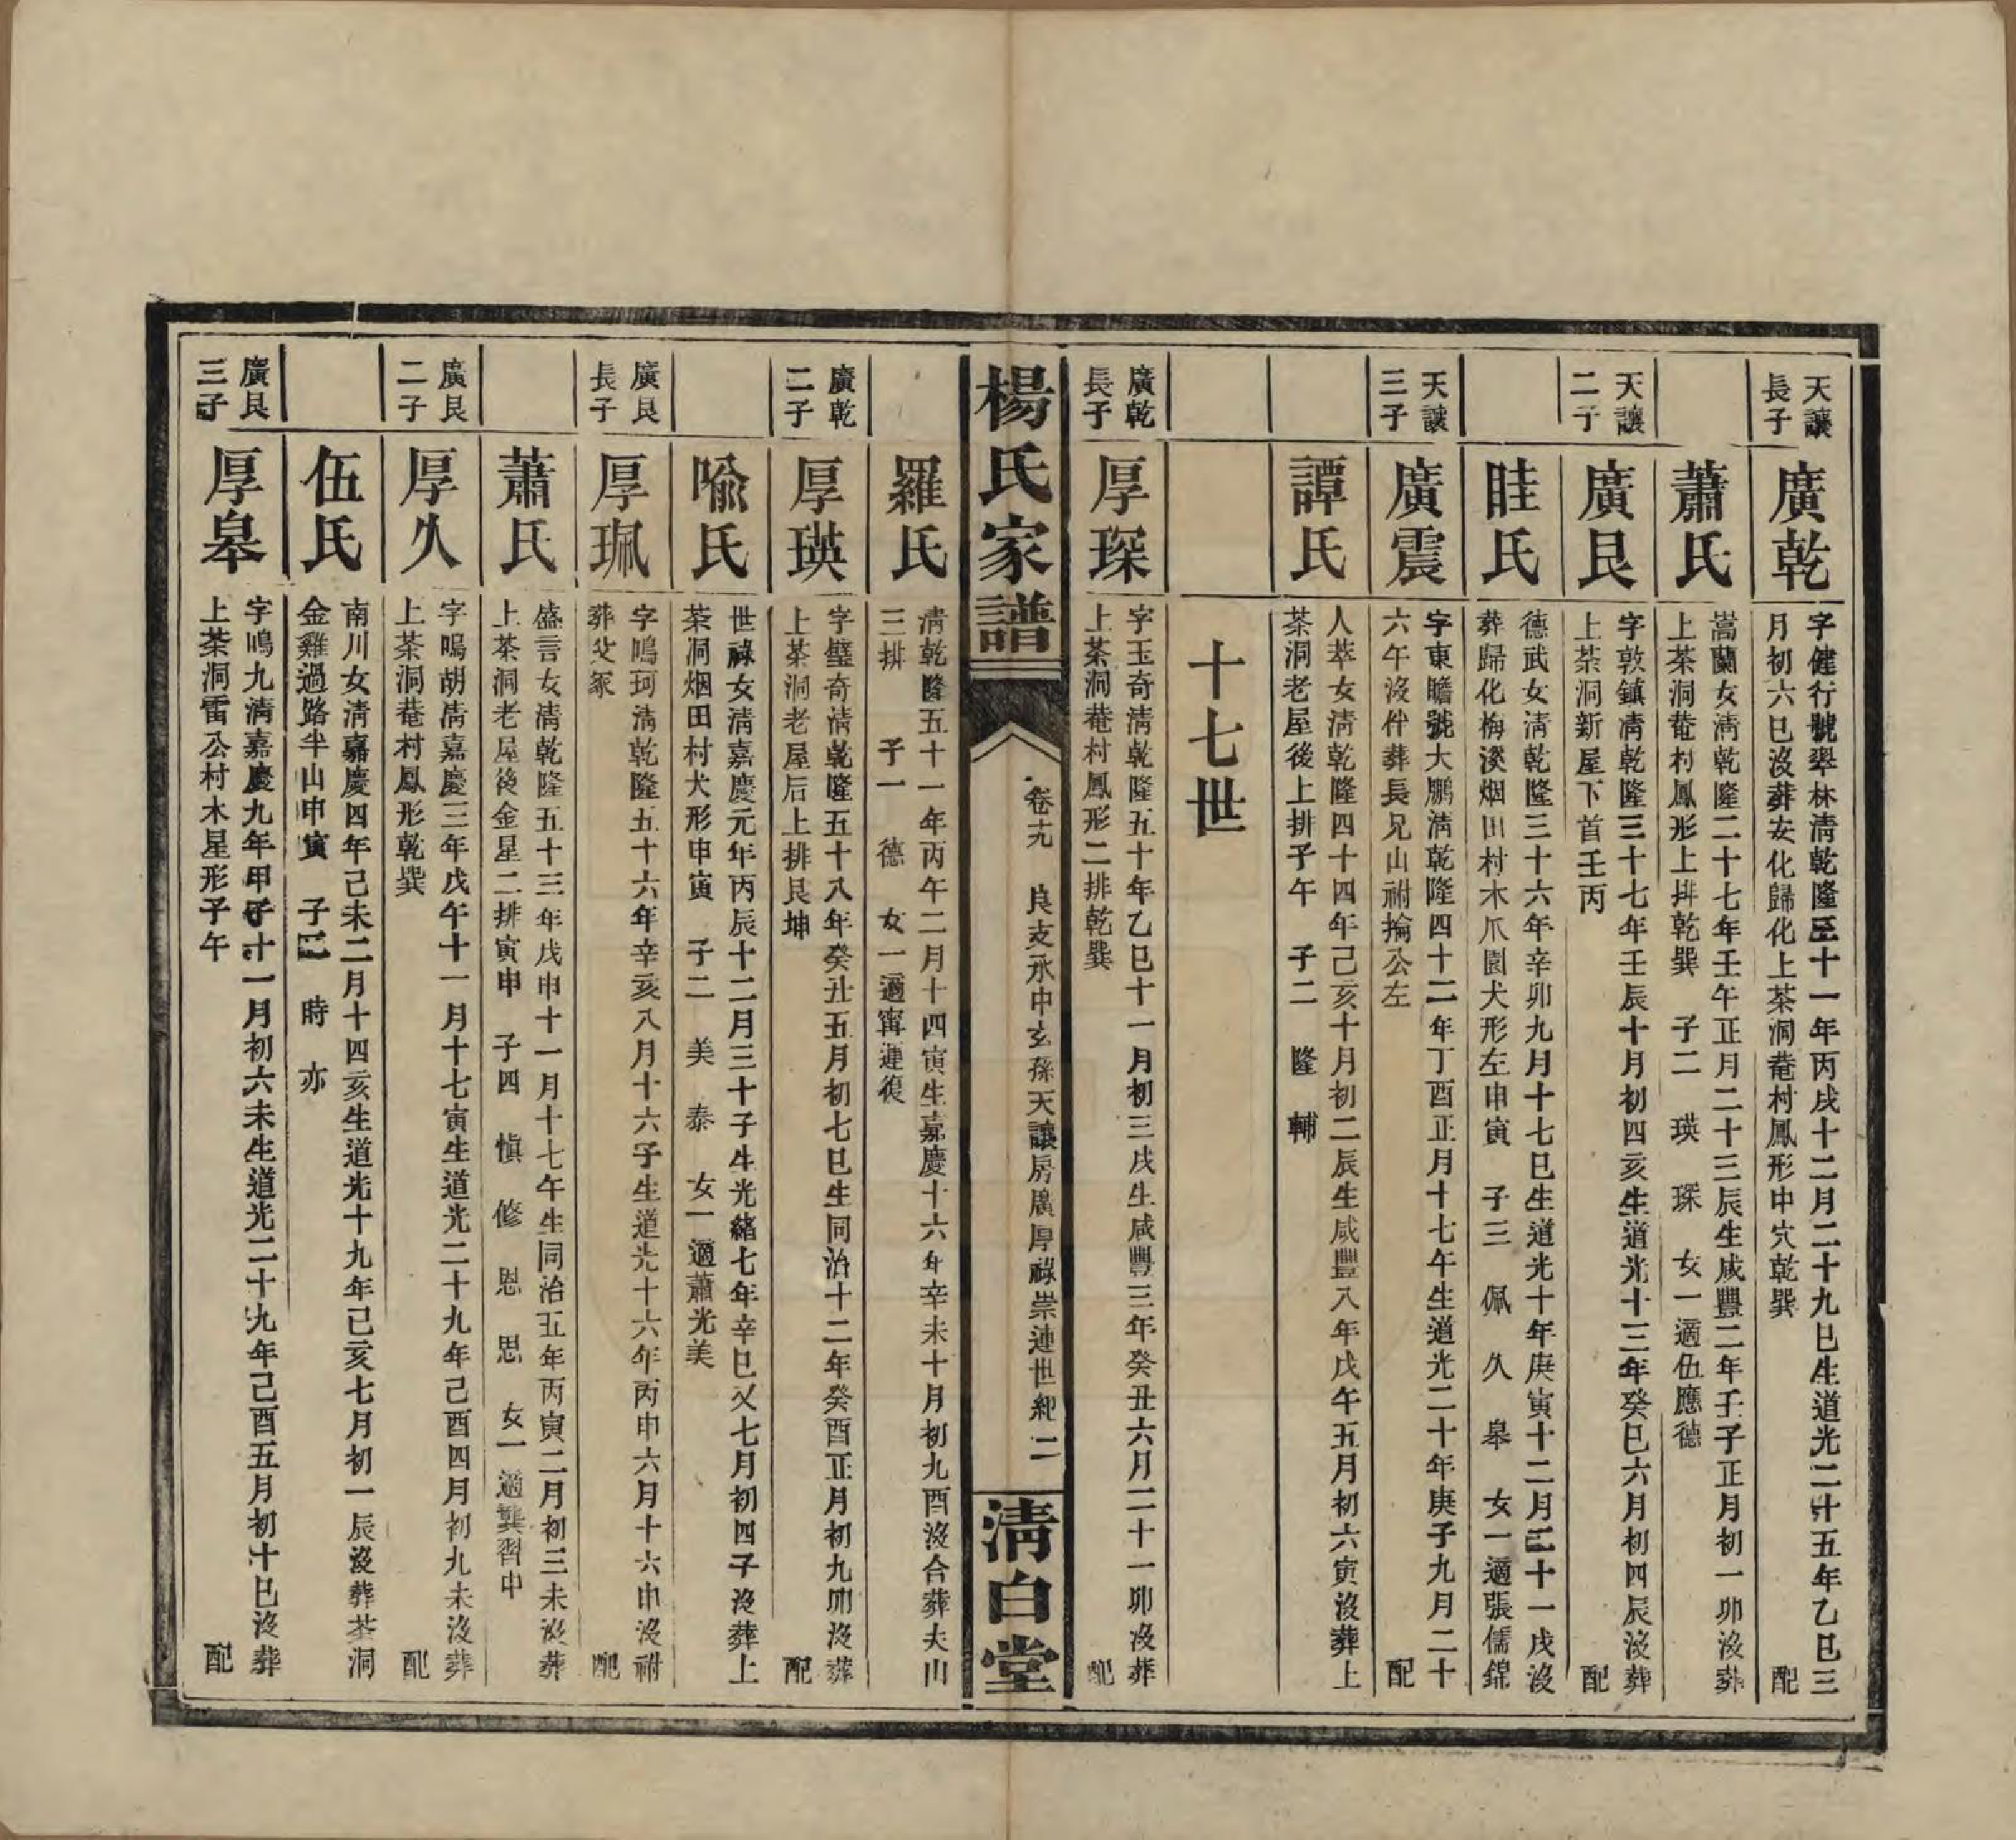 天讓
長子
廣乾
字健行號翠林清乾隆三十一年丙戌十二月二十九巳生道光二十五年乙巳三
月初六巳沒葬安化歸化上茶洞菴村鳳形中穴乾巽 配
蕭氏
嵩蘭女清乾隆二十七年壬午正月二十三辰生咸豐二年壬子正月初一卯沒葬
上茶洞菴村鳳形上排乾巽 子二 瑛 琛 女一適伍應德
天讓
二子
廣艮
字敦鎮清乾隆三十七年壬辰十月初四亥生道光十三年癸巳六月初四辰沒葬
上茶洞新屋下首壬丙 配
眭氏
德武女清乾隆三十六年辛卯九月十七巳生道光十年庚寅十二月二十一戌沒
葬歸化梅溪烟田村木爪園犬形左申寅 子三 佩 久 皋 女一適張儒錦
天讓
三子
廣震
字東瞻號大鵬清乾隆四十二年丁酉正月十七午生道光二十年庚子九月二十
六午沒仵葬長兄山祔掄公左 配
譚氏
人萃女清乾隆四十四年己亥十月初二辰生咸豐八年戊午五月初六寅沒葬上
茶洞老屋後上排子午 子二 隆 輔
十七世
廣乾
長子
厚琛
字玉奇清乾隆五十年乙巳十一月初三戌生咸豐三年癸丑六月二十一卯沒葬
上茶洞菴村鳳形二排乾巽 配
楊氏家譜
卷十九 良支永中玄孫天讓房廣厚祿崇連世紀 二
清白堂
羅氏
清乾隆五十一年丙午二月十四寅生嘉慶十六年辛未十月初九酉沒合葬夫山
三排 子一 德 女一適甯連復
廣乾
二子
厚瑛
字璧奇清乾隆五十八年癸丑五月初七巳生同治十二年癸酉正月初九卯沒葬
上茶洞老屋后上排艮坤 配
喻氏
世祿女清嘉慶元年丙辰十二月三十子生光緒七年辛巳又七月初四子沒葬上
茶洞烟田村犬形申寅 子二 美 泰 女一適蕭光美
廣艮
長子
厚珮
字鳴珂清乾隆五十六年辛亥八月十六子生道光十六年丙申六月十六申沒祔
葬父冢 配
蕭氏
盛言女清乾隆五十三年戊申十一月十七午生同治五年丙寅二月初三未沒葬
上茶洞老屋後金星二排寅申 子四 慎 修 恩 思 女一適龔習中
廣艮
二子
厚久
字鳴胡清嘉慶三年戊午十一月十七寅生道光二十九年己酉四月初九未沒葬
上茶洞菴村鳳形乾巽 配
伍氏
南川女清嘉慶四年己未二月十四亥生道光十九年己亥七月初一辰沒葬茶洞
金雞過路半山申寅 子二 時 亦
廣艮
三子
厚皋
字鳴九清嘉慶九年甲子十一月初六未生道光二十九年己酉五月初十巳沒葬
上茶洞雷公村木星形子午 配